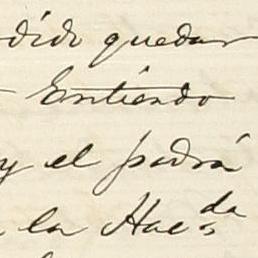 dido quedar
Entiendo
y el podrá
la Hacda